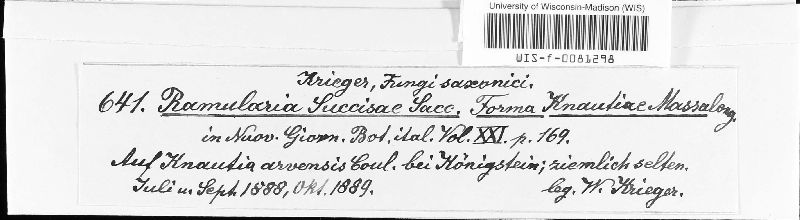 University of Wisconsin-Madison (WIS)
WIS-f-0081298
Krieger, Fungi saxonici.
641. Ramularia Succisae Sacc. Forma Knautiae Massalong.
in Nuov. Giorn. Bot. ital. Vol. XXI. p. 169.
Auf Knautia arvensis Coul. bei Königstein; ziemlich selten.
Juli u. Sept. 1888, Okt. 1889. leg. W. Krieger.